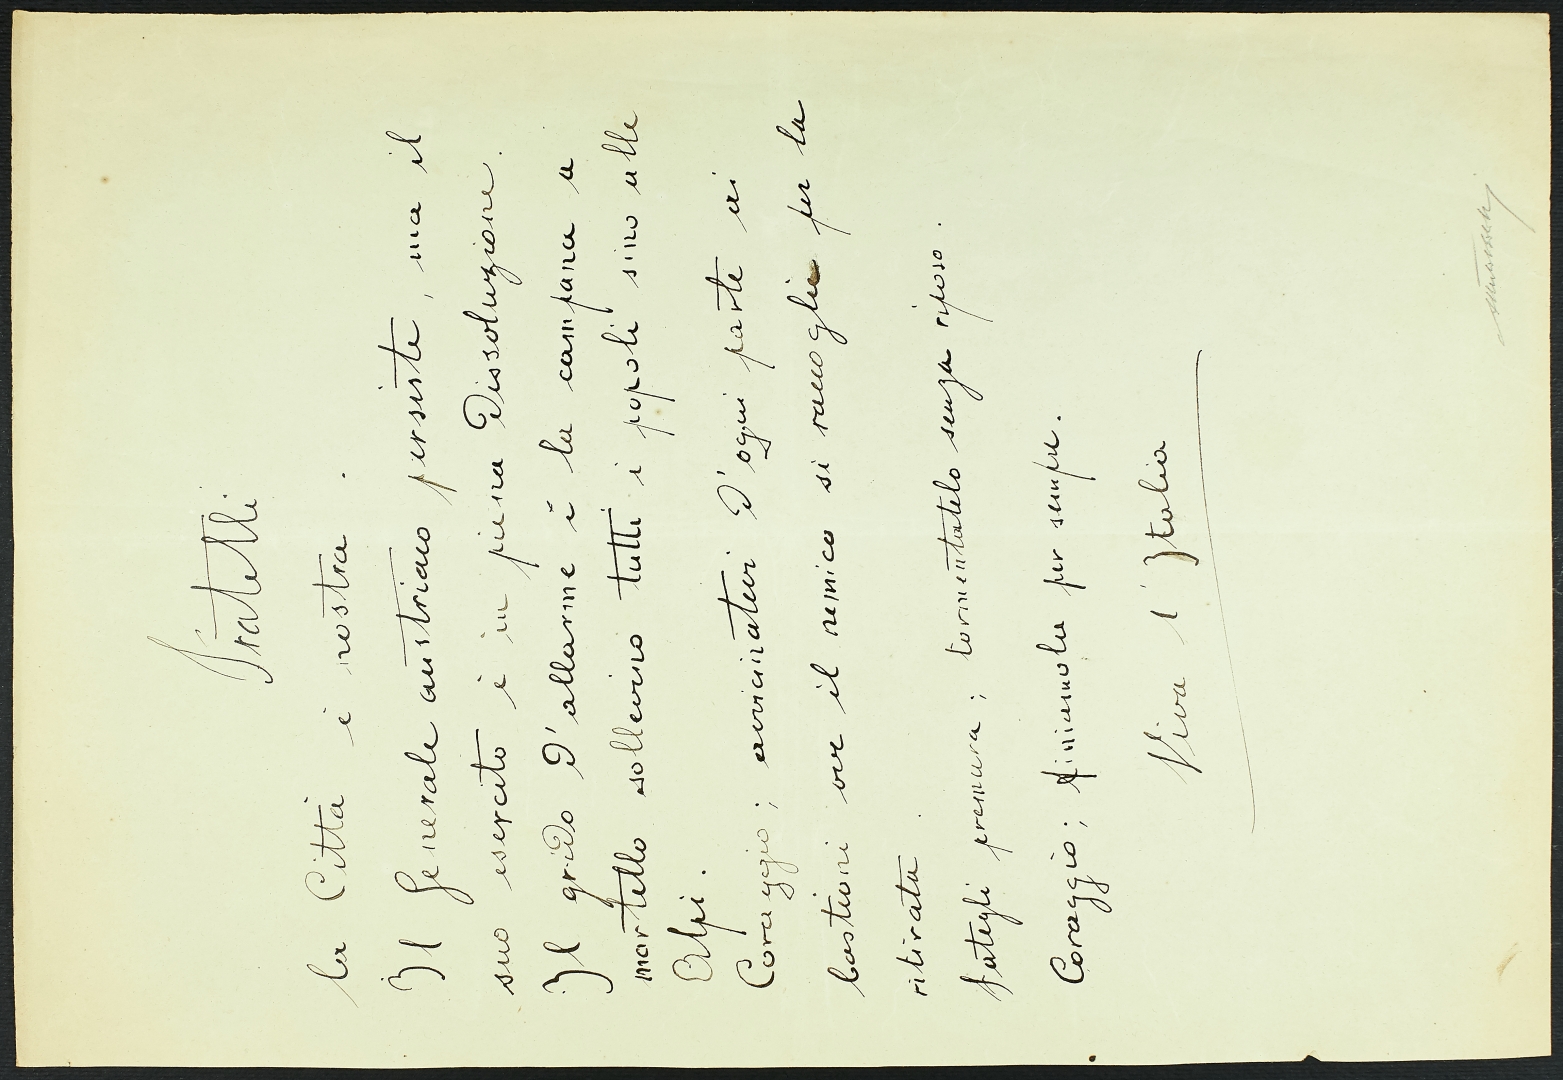 Fratelli
la Città è nostra.
Il Generale austriaco persiste, ma il
suo esercito è in piena dissoluzione.
Il grido d'allarme è la campana a
martello sollevino tutti i popoli sino alle
Alpi.
Coraggio; avvicinatevi d'ogni parte ai
bastioni ove il nemico si raccoglie per la
ritirata.
fategli premura; tormentatelo senza riposo.
Coraggio; finiamola per sempre.
Viva l'Italia